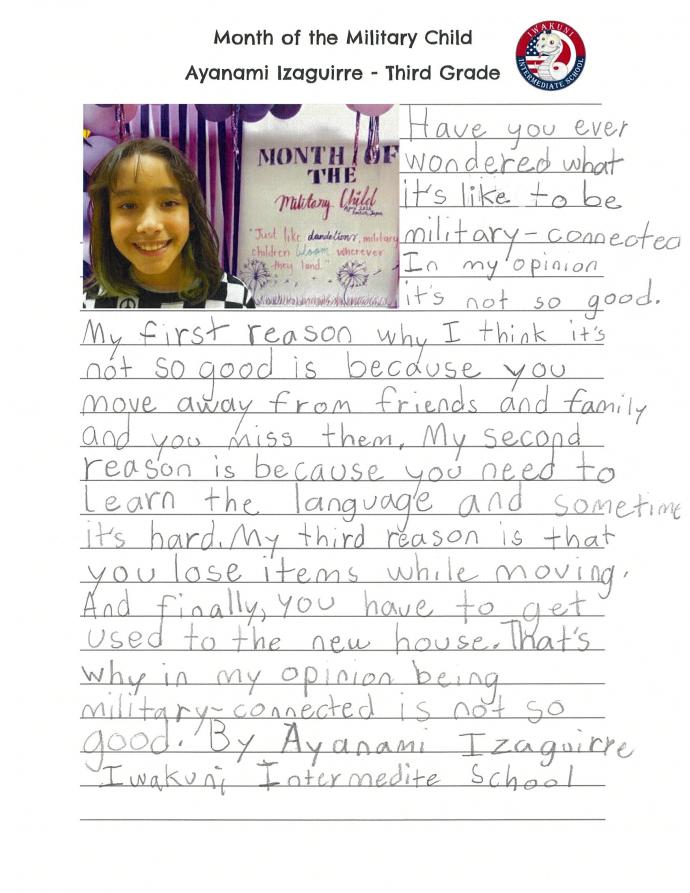 Month of the Military Child
Ayanami Izaguirre - Third Grade
IWAKUNI
INTERMEDIATE SCHOOL
MONTH OF
THE
Military Child
"Just like dandelions, military
children bloom wherever
they land."
Have you ever
wondered what
it's like to be
military-connected
In my opinion
it's not so good.
My first reason why I think it's
not so good is because you
move away from friends and family
and you miss them. My second
reason is because you need to
learn the language and sometime
it's hard. My third reason is that
you lose items while moving.
And finally, you have to get
used to the new house. That's
why in my opinion being
military-connected is not so
good. By Ayanami Izaguirre
Iwakuni Intermedite School